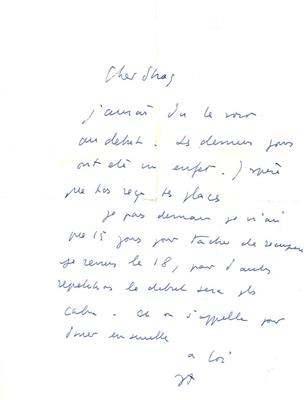 Cher Shag
j'aurai du le voir
au debut. Les derniers jours
ont été un enfer. J'espère
que tas reçu tes places
je pars demain je n'ai
que 15 jours pour tacher de recuperer
je reviens le 18, pour d'autres
repetitions le debut sera plus
calme. on s'appelle pour
diner ensemble
a toi